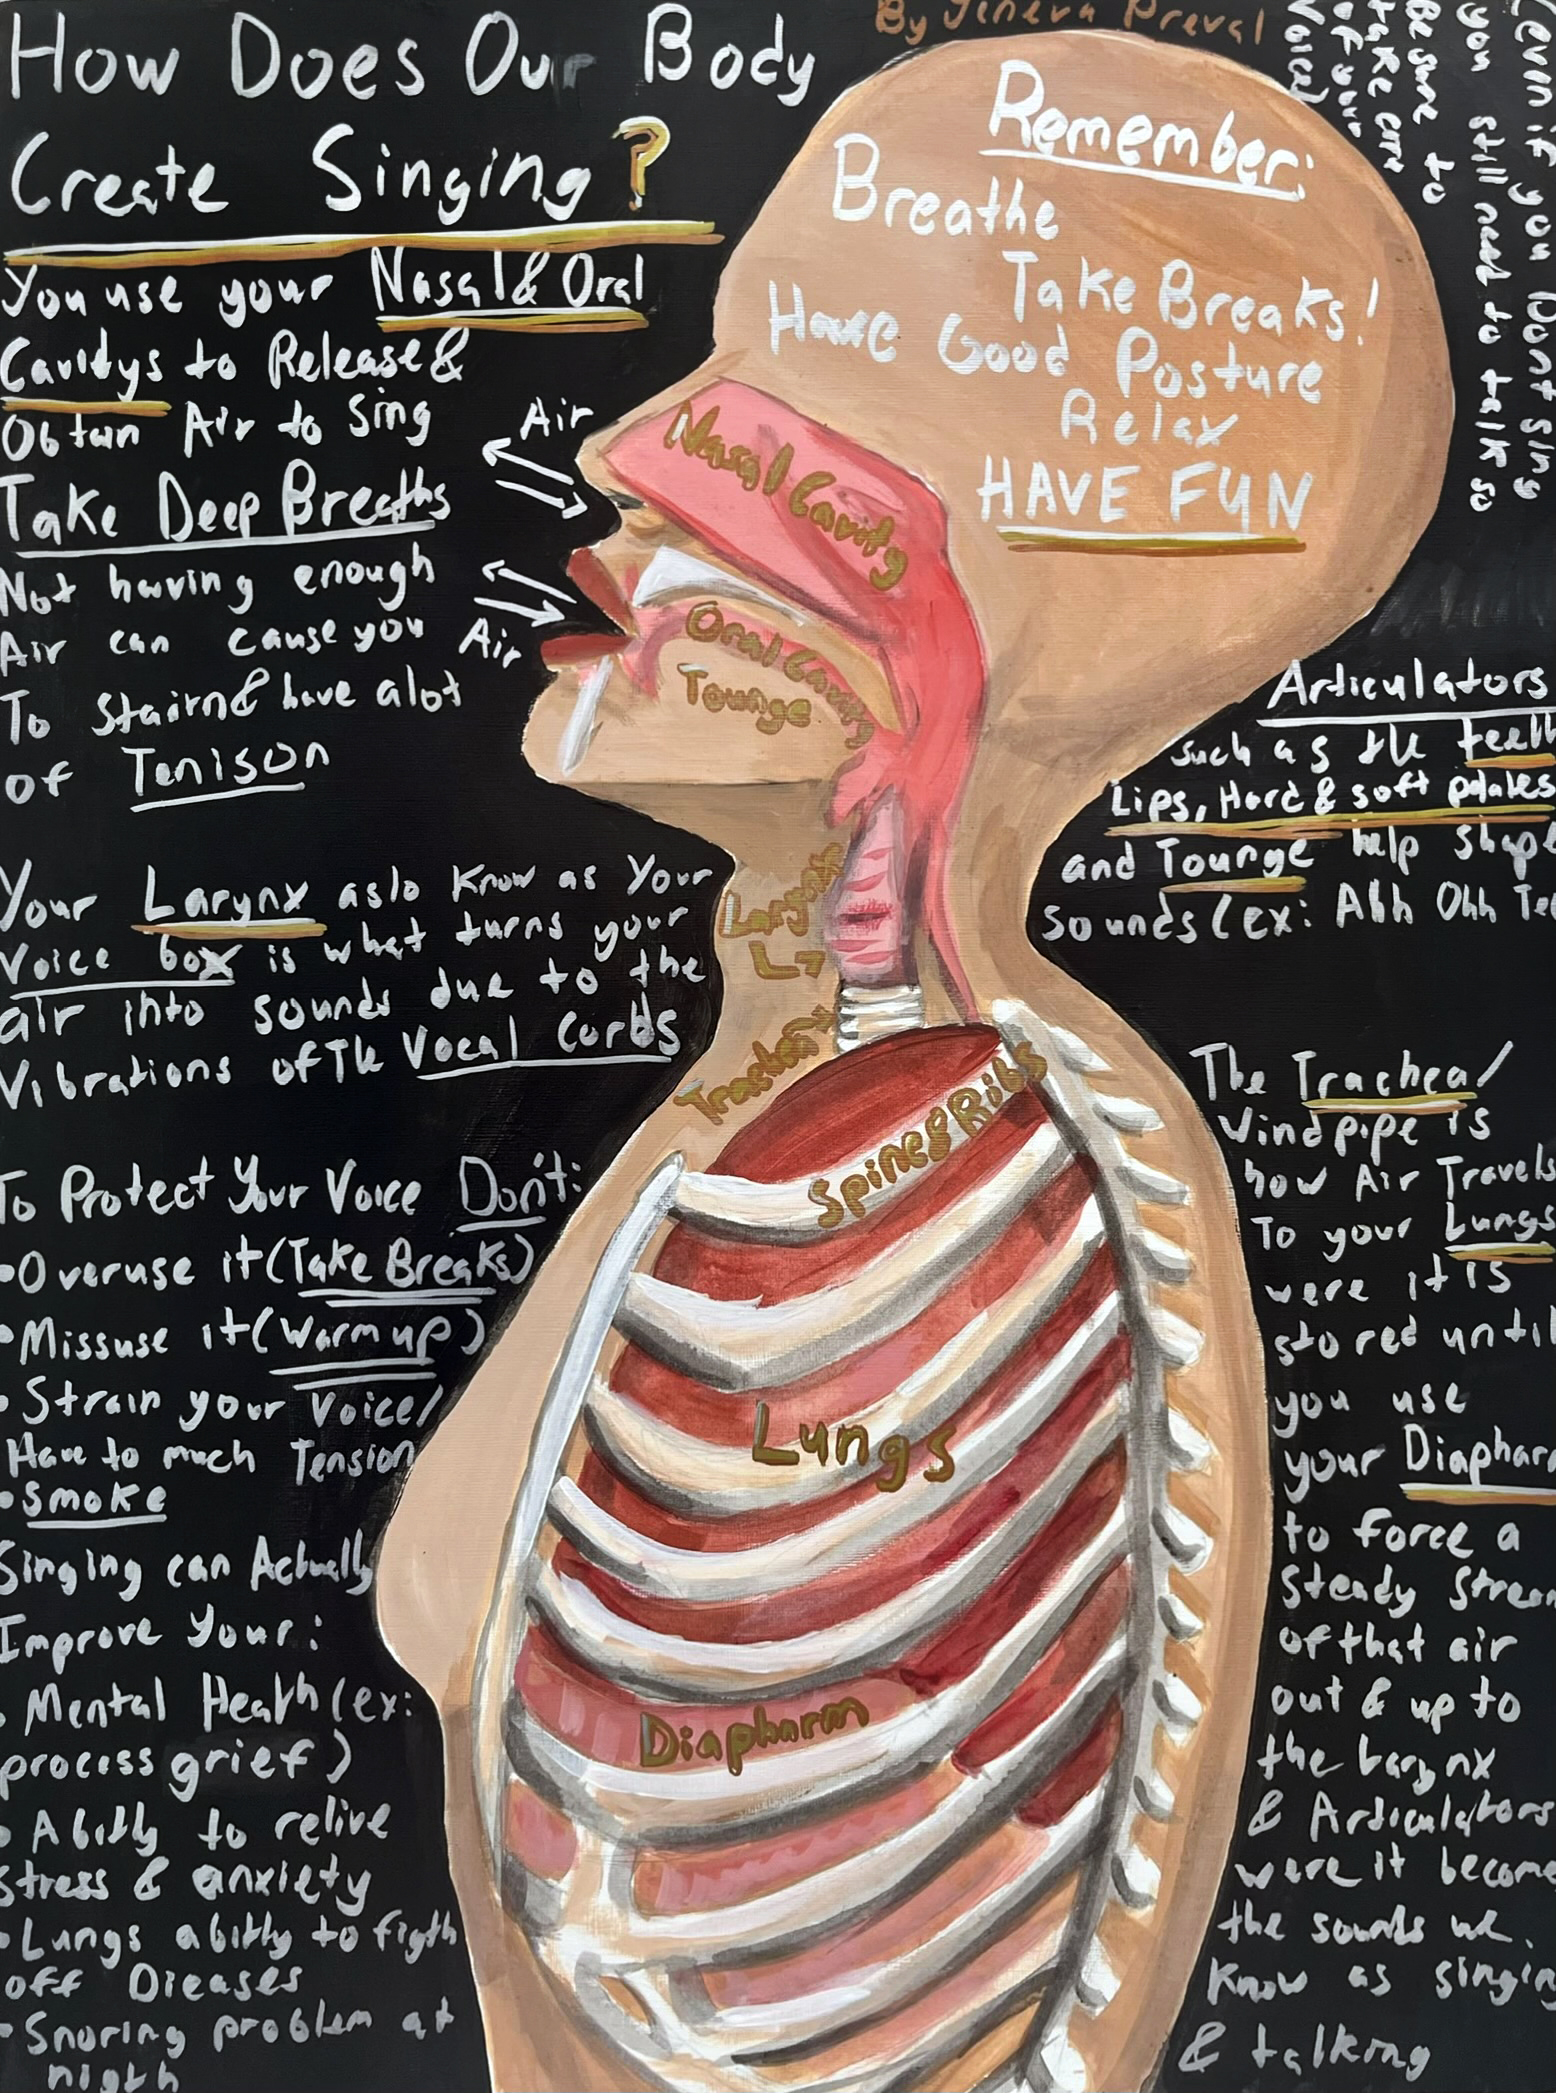 By Jineva Preval
How Does Our Body
Create Singing?
You use your Nasal & Oral
Cavidys to Release &
Obtain Air to Sing
Take Deep Breaths
Not having enough
Air can cause you
To Stairn & have alot
of Tenison
Your Larynx aslo Know as Your
Voice box is what turns your
air into sounds due to the
Vibrations of The Vocal Cords
To Protect Your Voice Don't:
•Overuse it (Take Breaks)
•Missuse it (Warm up)
•Strain your voice/
Have to much Tension
•Smoke
Singing can Actually
Improve Your:
•Mental Health (ex:
process grief)
•Abitly to relive
stress & anxiety
•Lungs abitly to figth
off Dieases
•Snoring problem at
nigth
Remember:
Breathe
Take Breaks!
Have Good Posture
Relax
HAVE FUN
Air
Air
Nasal Cavity
Oral Cavity
Tounge
Larynx
Trachea
Spine & Ribs
Lungs
Diapharm
if you Dont Sing
you still need to talk so
Be sure to
take care
of your
Voice!
Articulators
such as the teeth
Lips, Hard & soft palates
and Tounge help shape
sounds (ex: Ahh Ohh Tee
The Trachea/
Windpipe is
how Air Travels
To your Lungs
were it is
stored until
you use
your Diapharm
to force a
steady Stream
of that air
out & up to
the Larynx
& Articulators
were it become
the sounds we
Know as singing
& talking